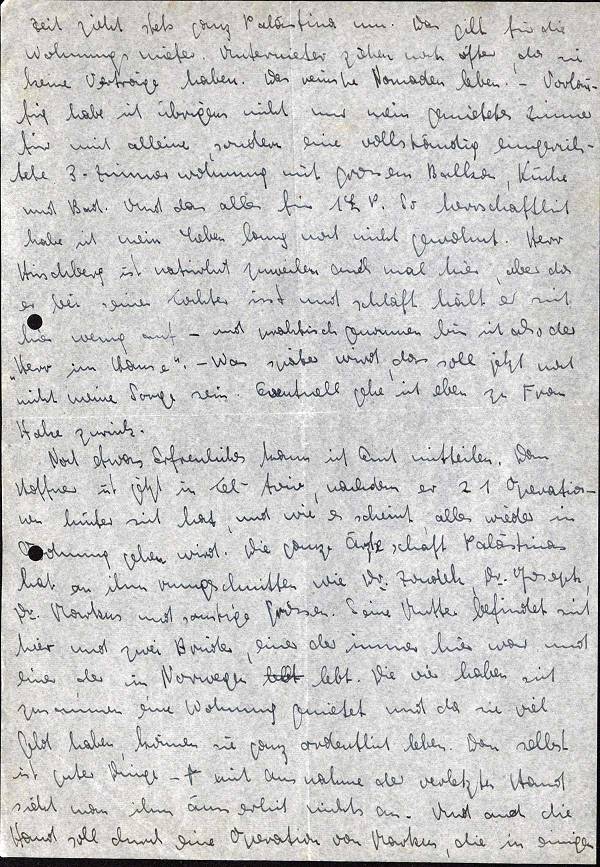 zeit zieht stets ganz Palästina um. Das gilt für die
Wohnungsmieter. Untermieter ziehen noch öfter, da sie
keine Verträge haben. Das reinste Nomadenleben. – Vorläu-
fig habe ich übrigens nicht nur mein gemietetes Zimmer
für mich alleine, sondern eine vollständig eingerich-
tete 3-Zimmerwohnung mit grossem Balkon, Küche
und Bad. Und das alles für 1 £ P. So herrschaftlich
habe ich mein Leben lang noch nicht gewohnt. Herr
Hirschberg ist natürlich zuweilen auch mal hier, aber da
er bei seiner Tochter isst und schläft hält er sich
hier wenig auf – und praktisch genommen bin ich also der
"Herr im Hause". – Was später wird, das soll jetzt noch
nicht meine Sorge sein. Eventuell gehe ich eben zu Frau
zurück.
Noch etwas Erfreuliches kann ich Euch mitteilen. Dan
Hoffner ist jetzt in Tel-Aviv, nachdem er 21 Operatio-
nen hinter sich hat, und wie es scheint, alles wieder in
Ordnung gehen wird. Die ganze Ärzteschaft Palästinas
hat an ihm rumgeschnitten wie Dr. Zondek, Dr. Joseph,
Dr. Markus und sonstige Grössen. Seine Mutter befindet sich
hier und zwei Brüder, einer der immer hier war und
einer der in Norwegen lebt. Die vier haben sich
zusammen eine Wohnung gemietet und da sie viel
Geld haben, können sie ganz ordentlich leben. Dan selbst
ist guter Dinge – mit Ausnahme der verletzten Hand
sieht man ihm äusserlich nichts an. Und auch die
Hand soll durch eine Operation von Markus, die in einigen